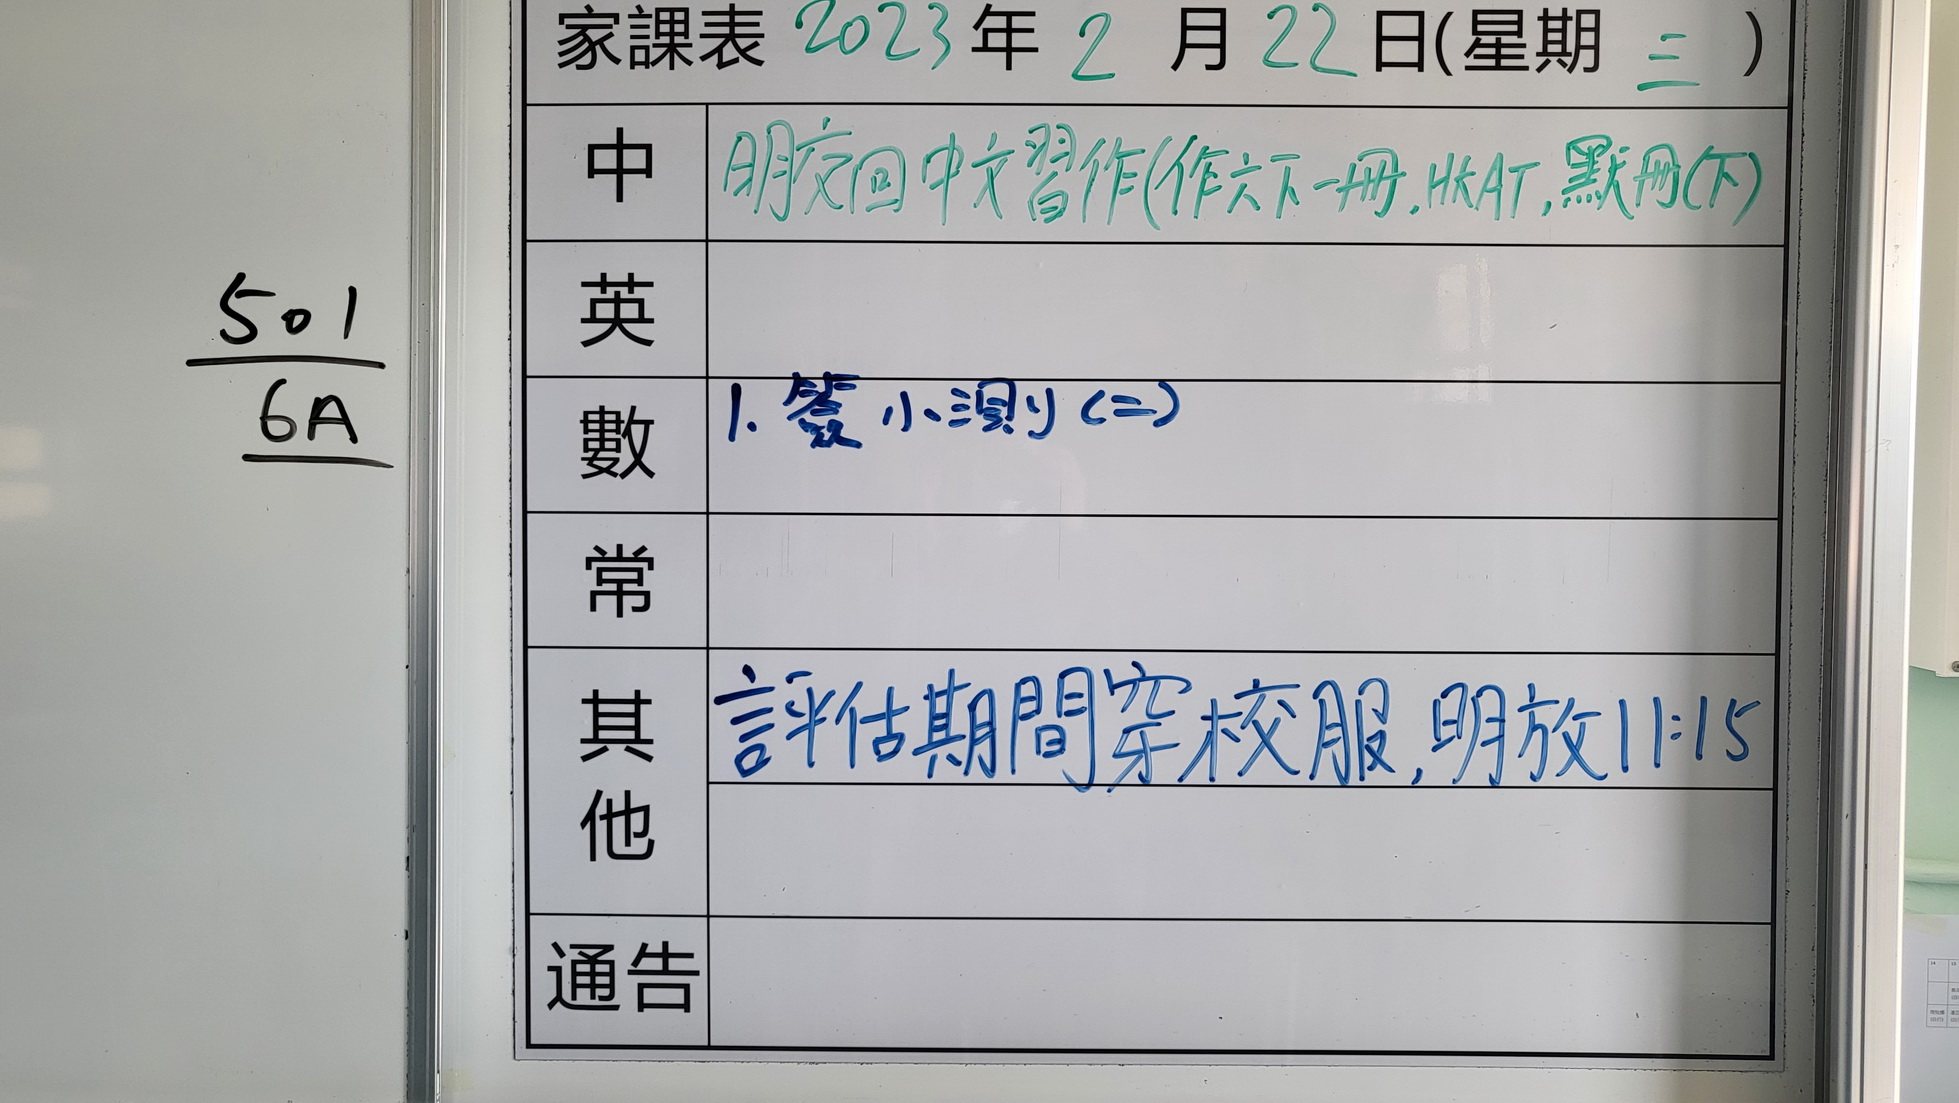 家課表 2023年 2 月 22日(星期 三 )
501
6A
中
明交回中文習作(作六下一冊,HKAT,默冊(下)
英
數
1. 簽小測(二)
常
其他
評估期間穿校服,明放11:15
通告